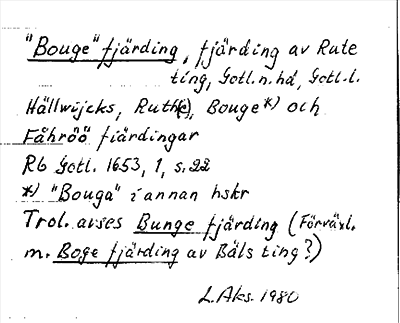 "Bouge" fjärding, fjärding av Rute
ting, Gotl.n.hd, Gotl.l.
Hällwijcks, Ruth(e), Bouge*) och
Fåhröö fiärdingar
Rb Gotl. 1653, 1, s.22
*) "Bouga" i annan hskr
Trol. avses Bunge fjärding (Förväxl.
m. Boge fjärding av Bäls ting?)
L.Aks. 1980